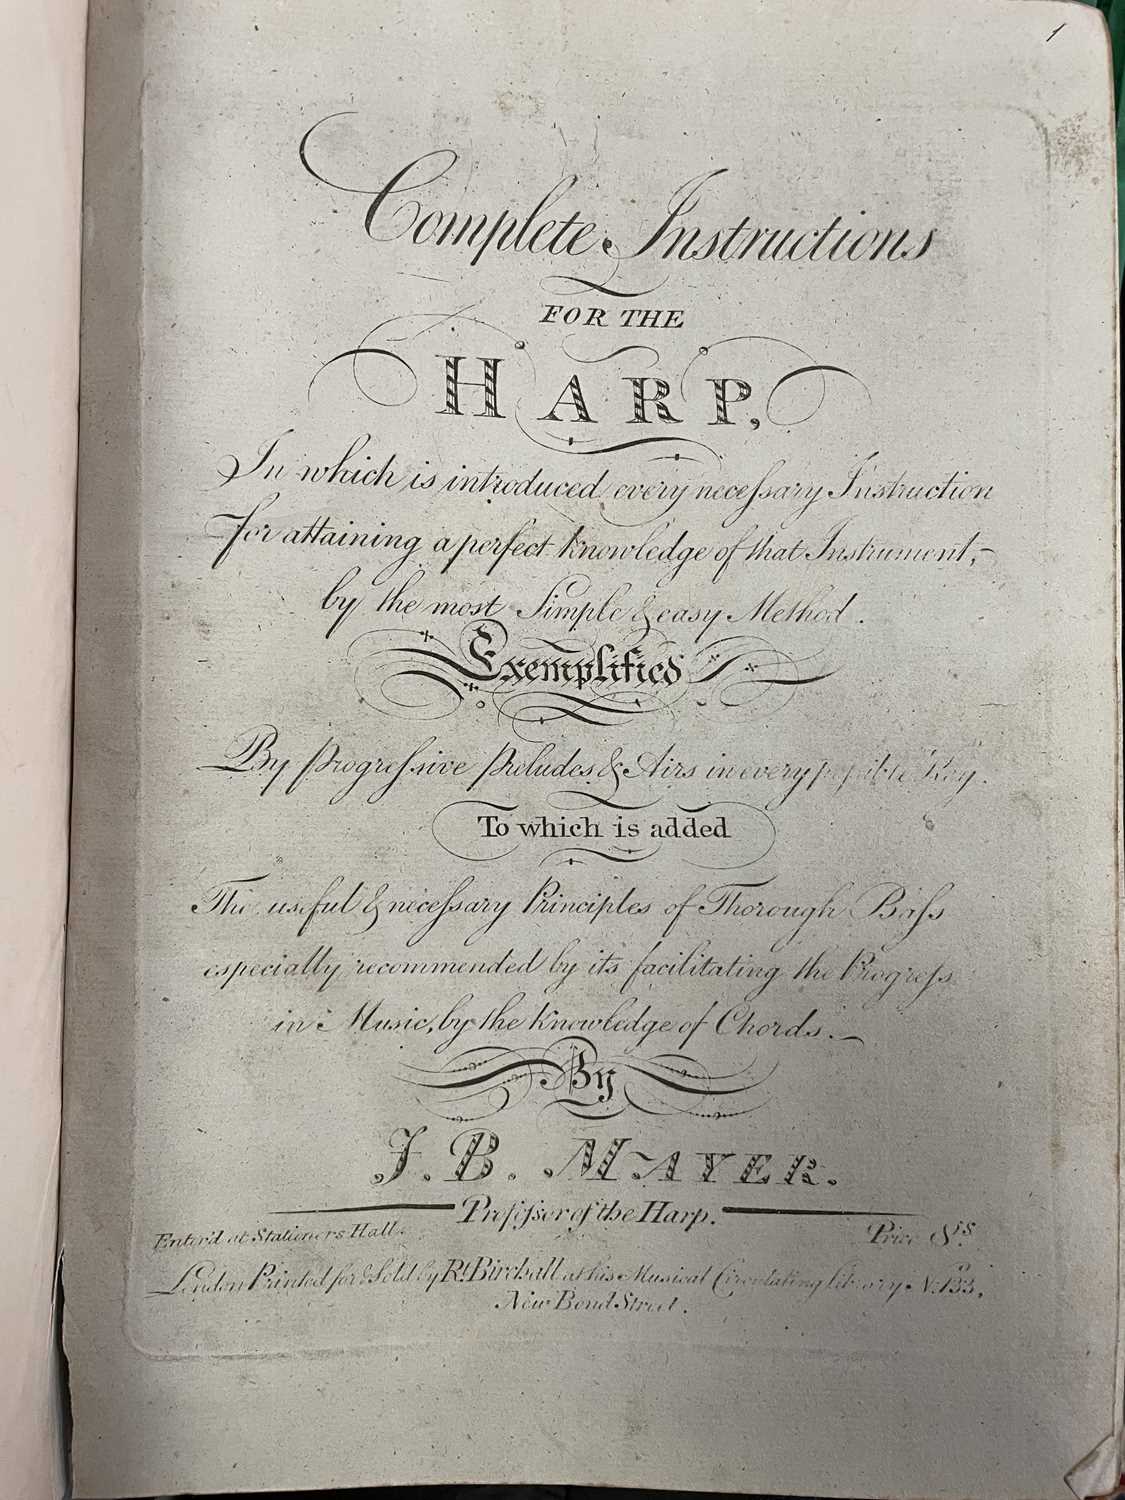 1
Complete Instructions
FOR THE
HARP,
In which is introduced every neceſsary Instruction
for attaining a perfect knowledge of that Instrument,
by the most Simple & easy Method.
Exemplified
By progreſsive preludes & Airs in every poſsible Key.
To which is added
The useful & neceſsary Principles of Thorough Baſs
especially recommended by its facilitating the Progreſs
in Music, by the knowledge of Chords.
By
J. B. MAYER.
Profeſsor of the Harp.
Enter'd at Stationers Hall. Price 8s.
London Printed for & Sold by Rt. Birchall at his Musical Circulating Library No. 133,
New Bond Street.